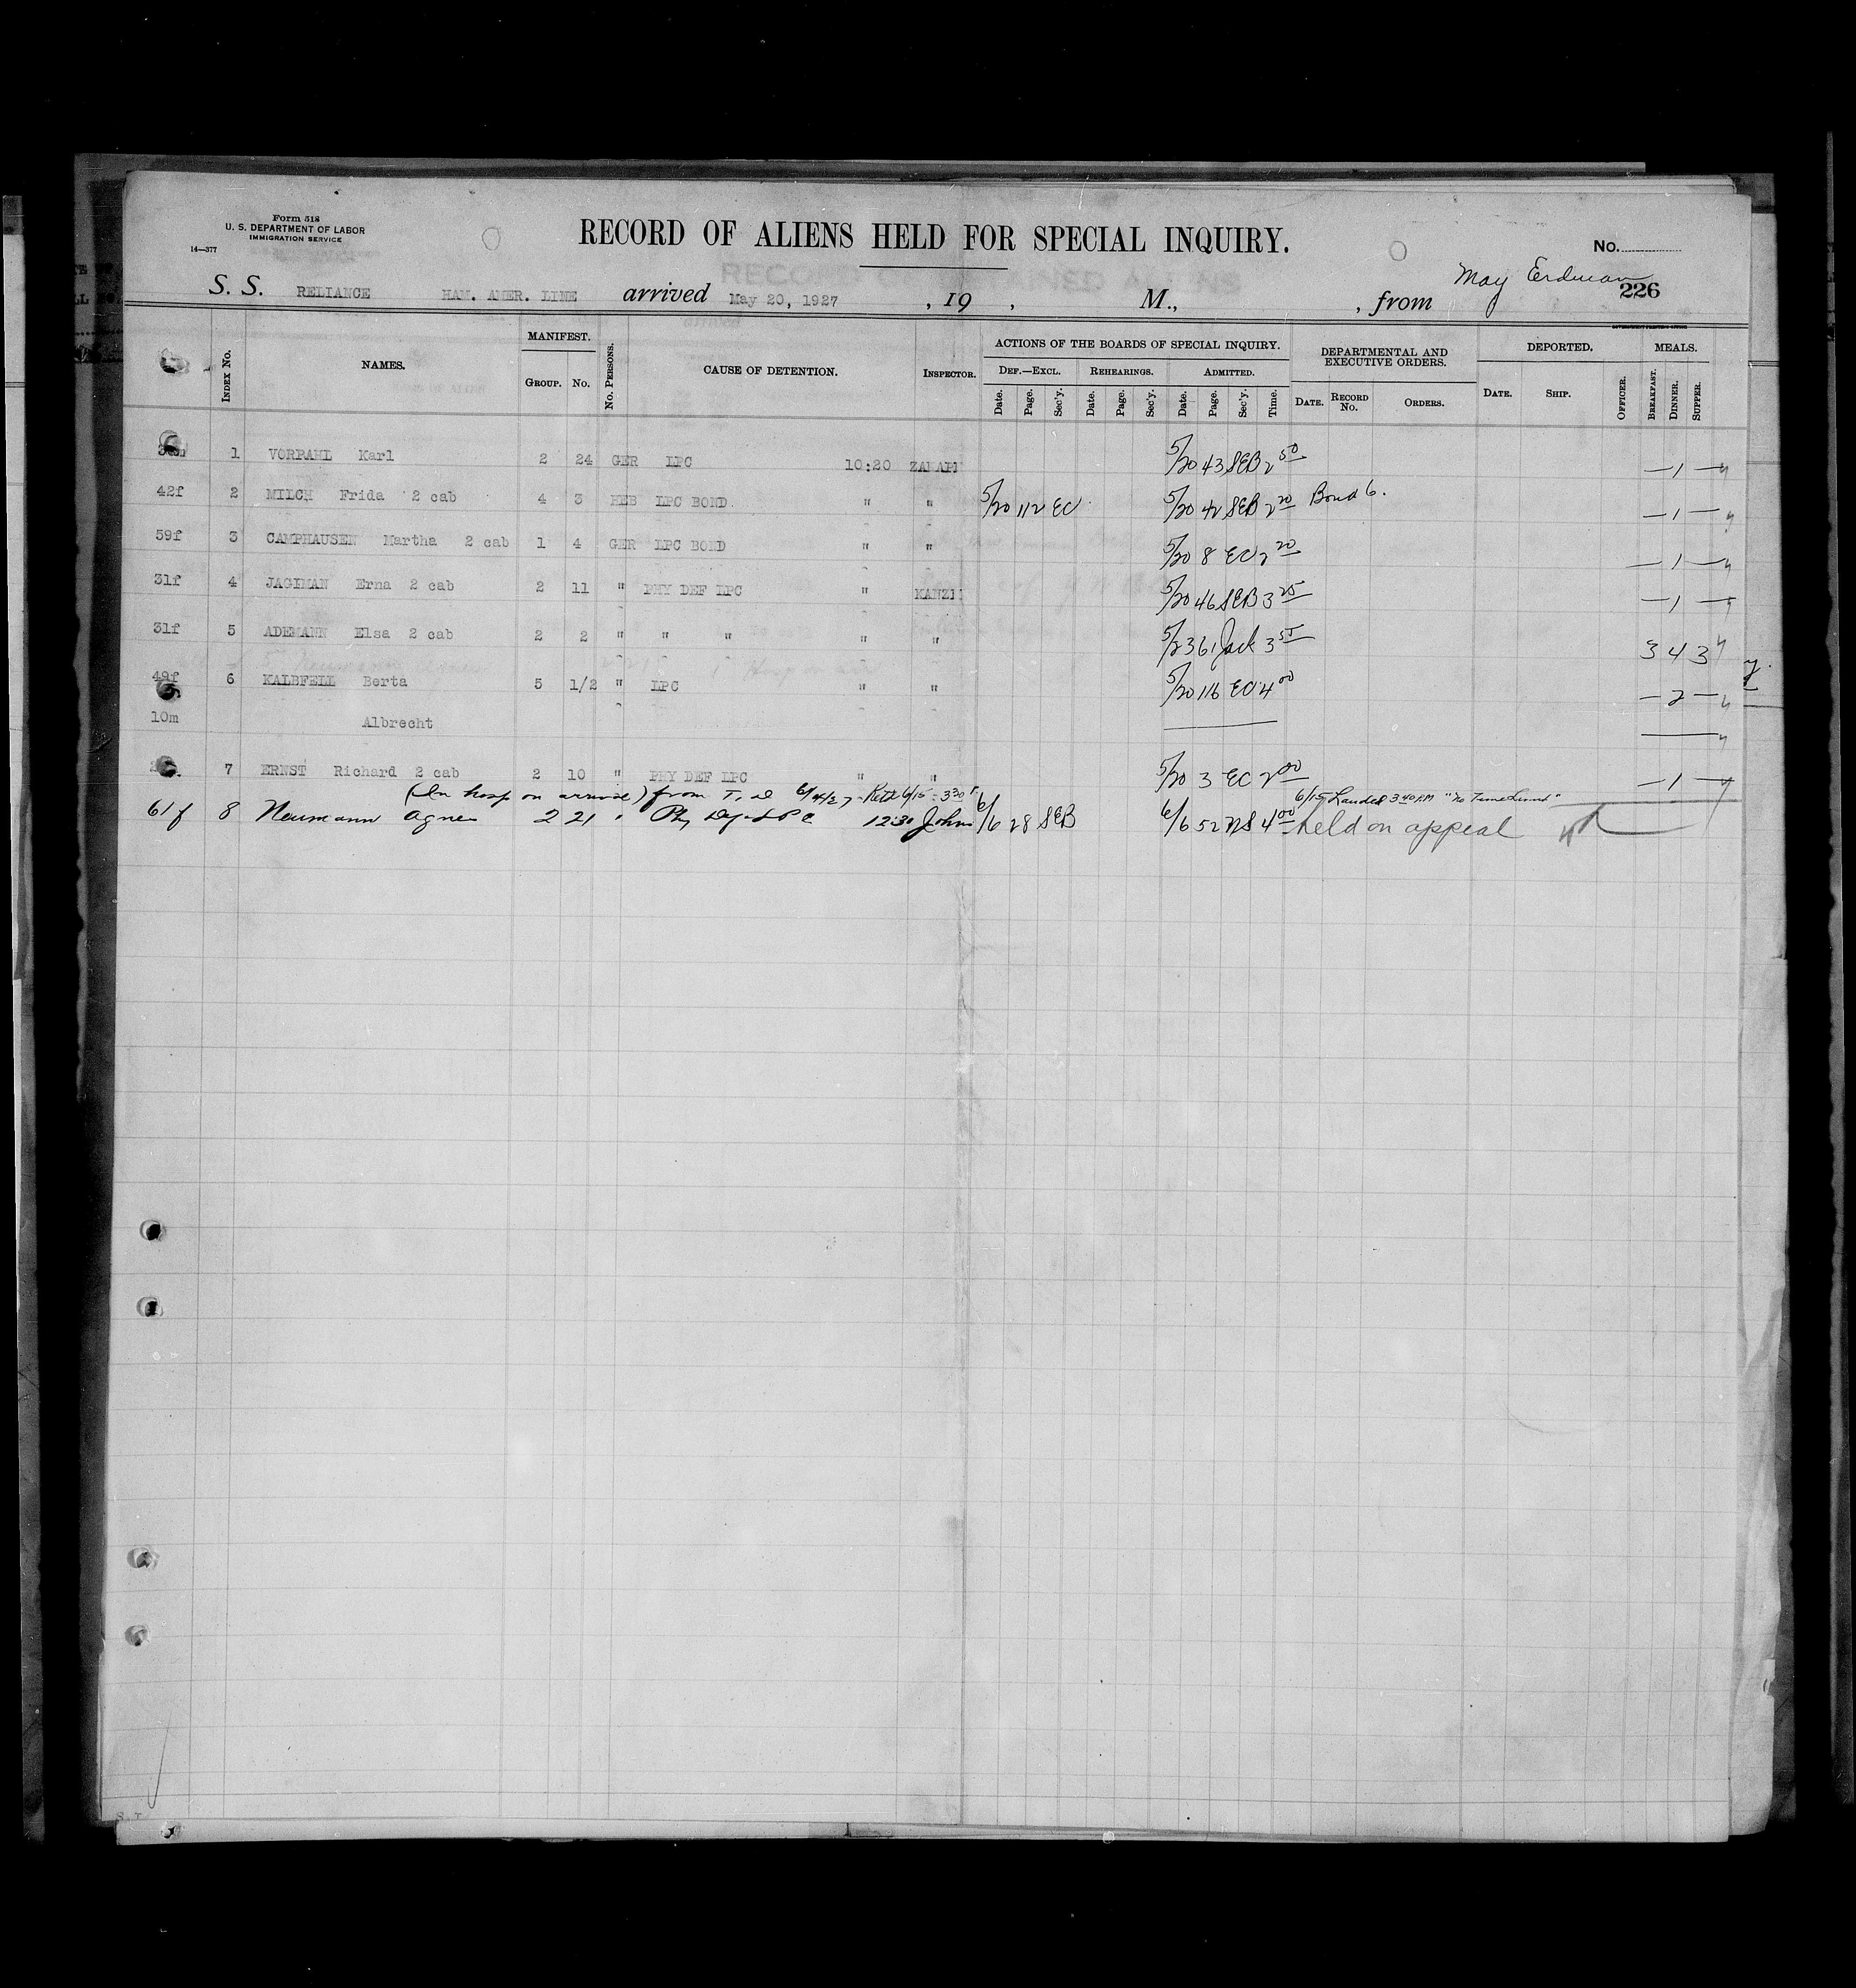 Form 518
U. S. DEPARTMENT OF LABOR
IMMIGRATION SERVICE
14—377
RECORD OF ALIENS HELD FOR SPECIAL INQUIRY.
No.
May Erdman
226
S. S. RELIANCE HAM. AMER. LINE arrived May 20, 1927 , 19 , M., , from
INDEX No. NAMES. MANIFEST. GROUP. No. No. PERSONS. CAUSE OF DETENTION. INSPECTOR. ACTIONS OF THE BOARDS OF SPECIAL INQUIRY. DEF.—EXCL. Date. Page. Sec'y. REHEARINGS. Date. Page. Sec'y. ADMITTED. Date. Page. Sec'y. Time. DEPARTMENTAL AND EXECUTIVE ORDERS. DATE. RECORD No. ORDERS. DEPORTED. DATE. SHIP. OFFICER. MEALS. BREAKFAST. DINNER. SUPPER.
1 VORPAHL Karl 2 24 GER LPC 10:20 5/20 43 SEB 2 50 — 1 —
42f 2 MILCH Frida 2 cab 4 3 HEB LPC BOND " " 5/20 112 EC 5/20 42 SEB 2 20 Bond 6. — 1 —
59f 3 CAMPHAUSEN Martha 2 cab 1 4 GER LPC BOND " " 5/20 8 EC 2 20 — 1 —
31f 4 JAGIMAN Erna 2 cab 2 11 " PHY DEF LPC " 5/20 46 SEB 3 25 — 1 —
31f 5 ADEMANN Elsa 2 cab 2 2 " " " " " 5/23 61 Jack 3 55 3 4 3
49f 6 KALBFELL Berta 5 1/2 " LPC " " 5/20 116 EC 4 00 — 2 —
10m Albrecht
7 ERNST Richard 2 cab 2 10 " PHY DEF LPC " " 5/20 3 EC 2 00 — 1 —
(In hosp on arrival) from T. D 6/4/27 - Retd 6/15 - 3 30 P 6/15 Landed 3 40 P.M "No Time Limit"
61f 8 Neumann Agnes 2 21 " Phy Def LPC 12:30 John 6/6 28 SEB 6/6 52 4 00 held on appeal